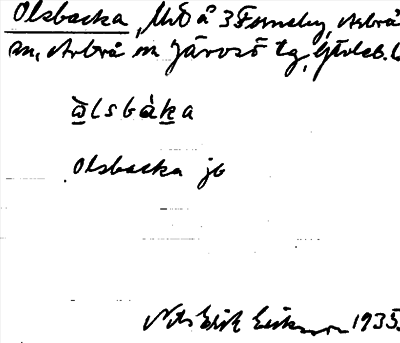 Olsbacka, på 3 Forneby, Arbrå
sn, Arbrå m Järvsö tg, Gävleb. l
àlsbàka
Olsbacka jb
Nils Erik Eriksson 1935.